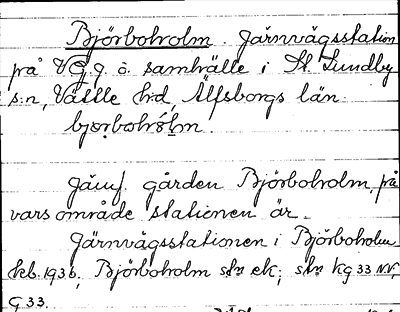 Björboholm. Järnvägsstation
på V.G.g. o. samhälle i St. Lundby
s:n, Vättle h:d, Älfsborgs län.
bjorbohólm.
Jämf. gården Björboholm, på
vars område stationen är.
Järnvägsstationen i Björboholm
kb. 1936, Björboholm stn ek; stn Kg 33 NV,
G 33.